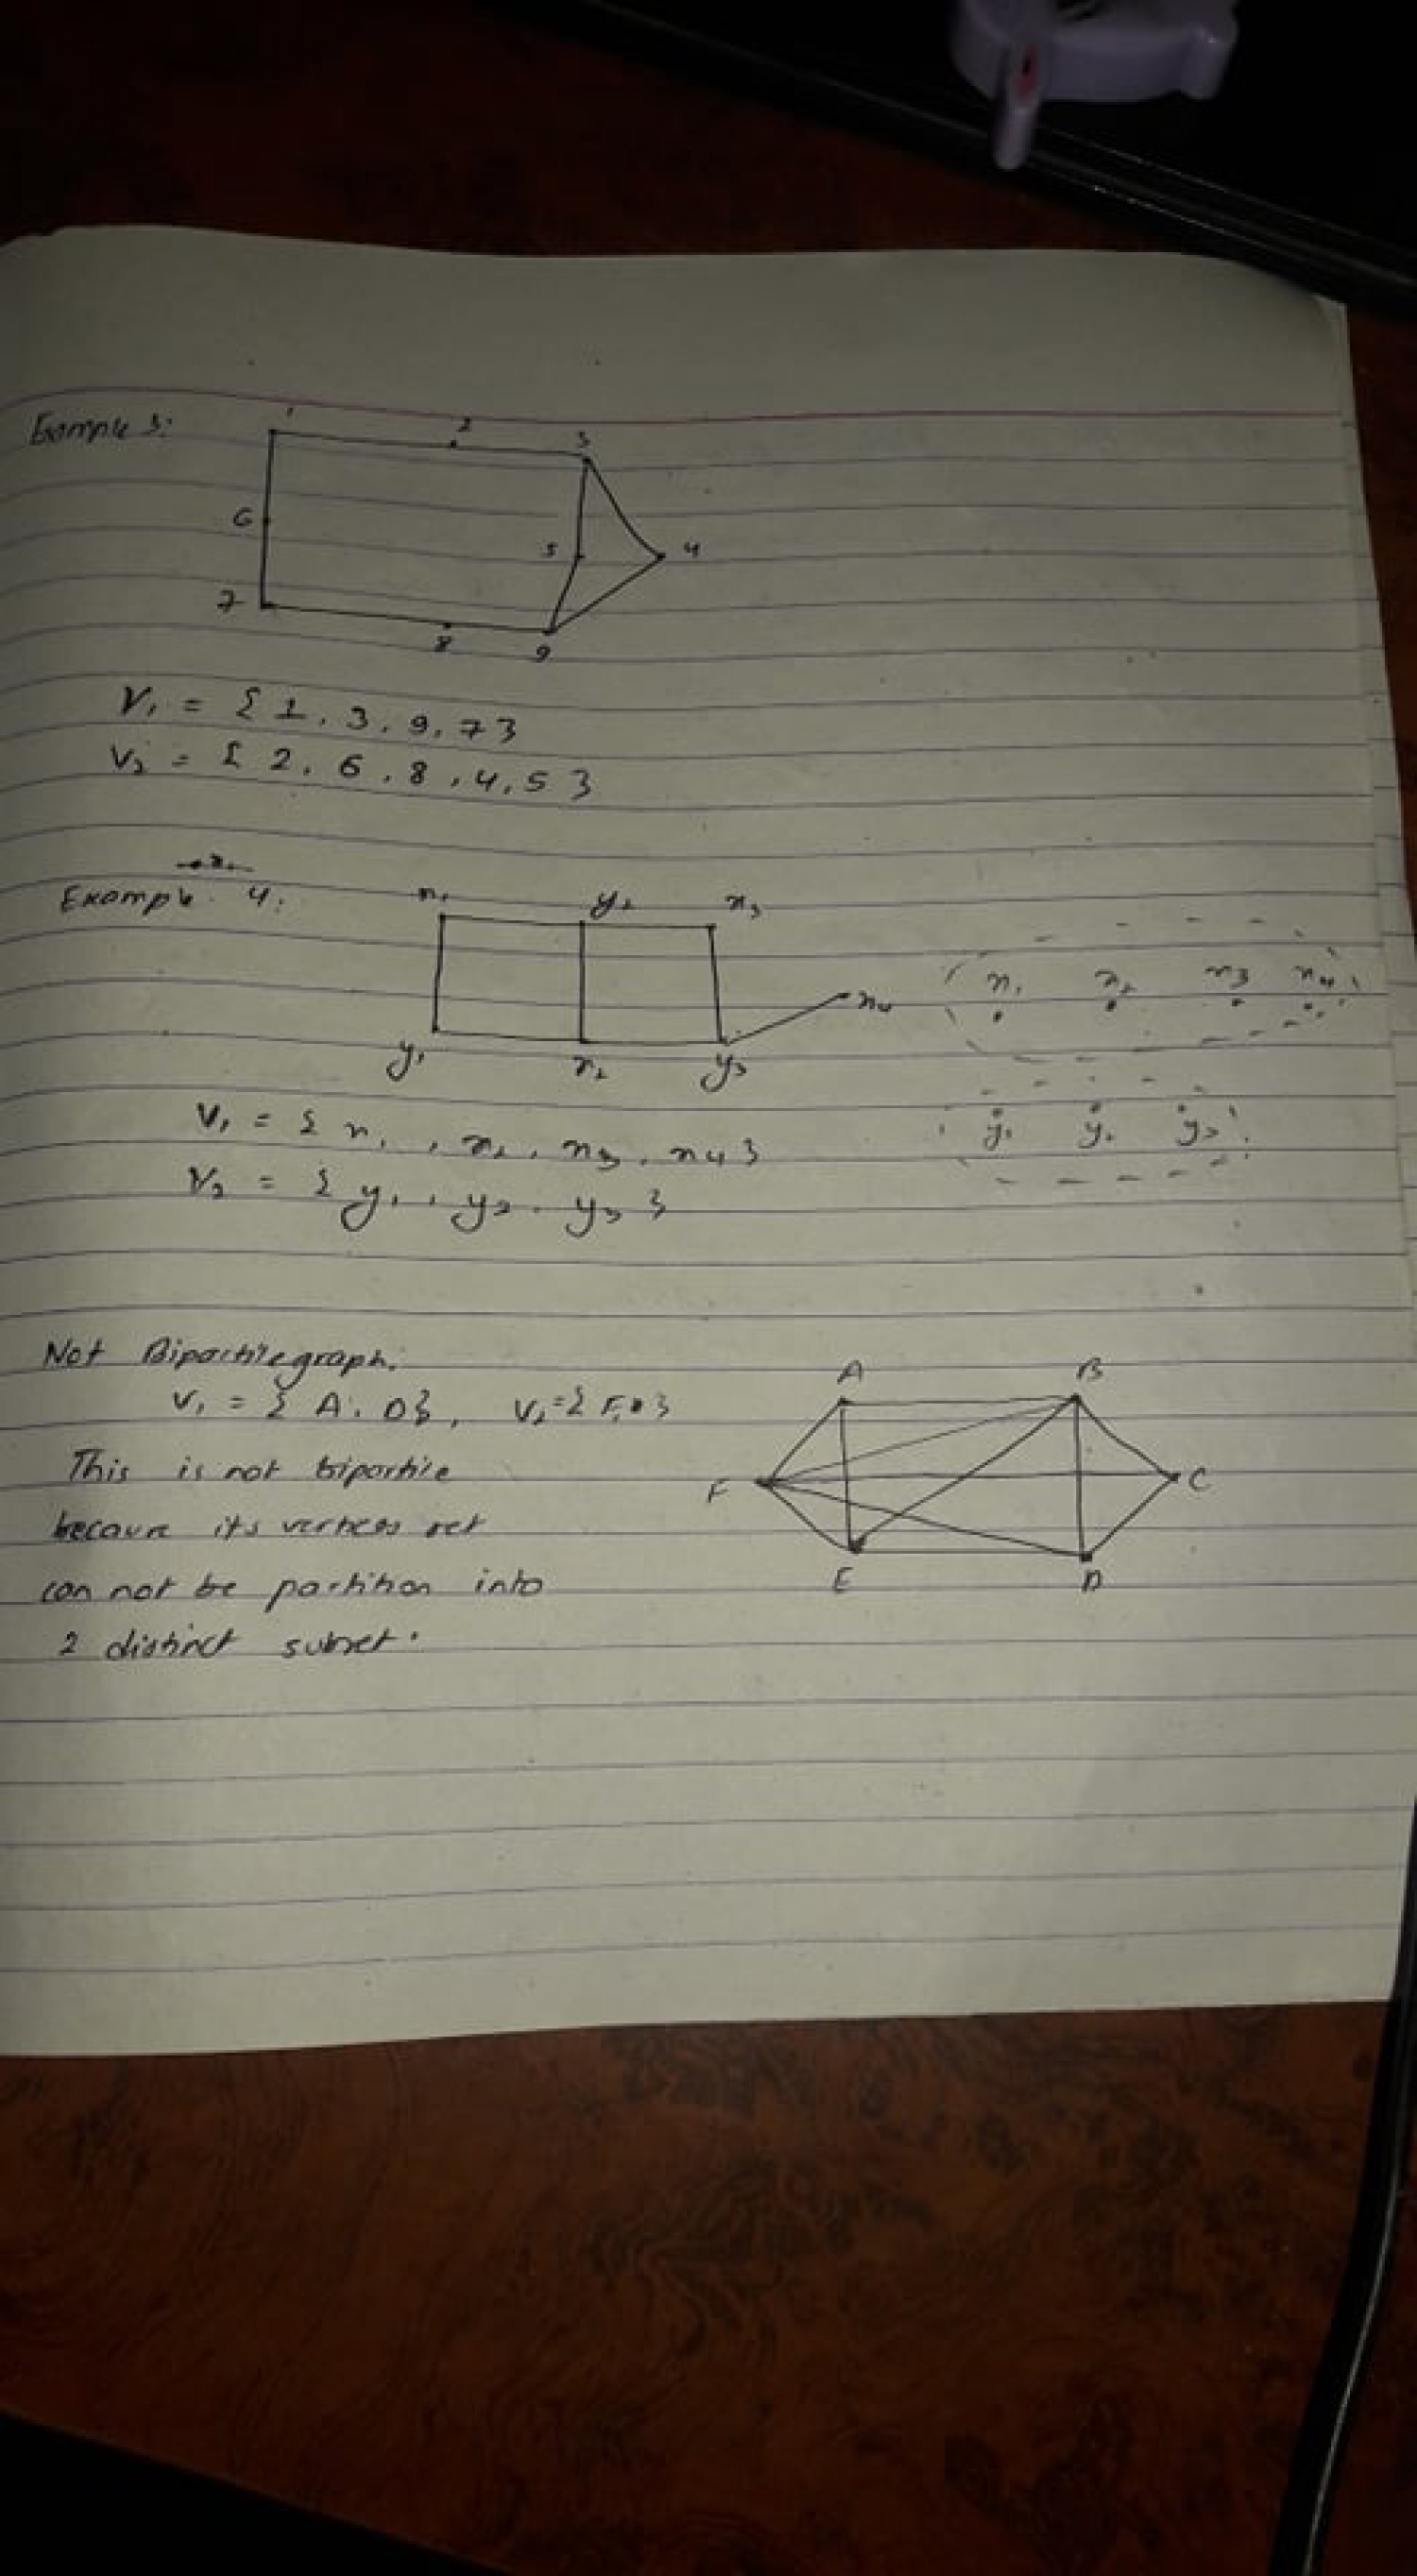 Example 3:
1 2 3
6 5 4
7 8 9
V₁ = { 1, 3, 9, 7 }
V₂ = { 2, 6, 8, 4, 5 }
Example 4:
x₁ y₂ x₃
x₄
y₁ x₂ y₃
x₁ x₂ x₃ x₄
y₁ y₂ y₃
V₁ = { x₁, x₂, x₃, x₄ }
V₂ = { y₁, y₂, y₃ }
Not Bipartite graph.
V₁ = { A, D }, V₂ = {
This is not bipartite
because its vertex set
can not be partition into
2 distinct subset.
A B
F C
E D